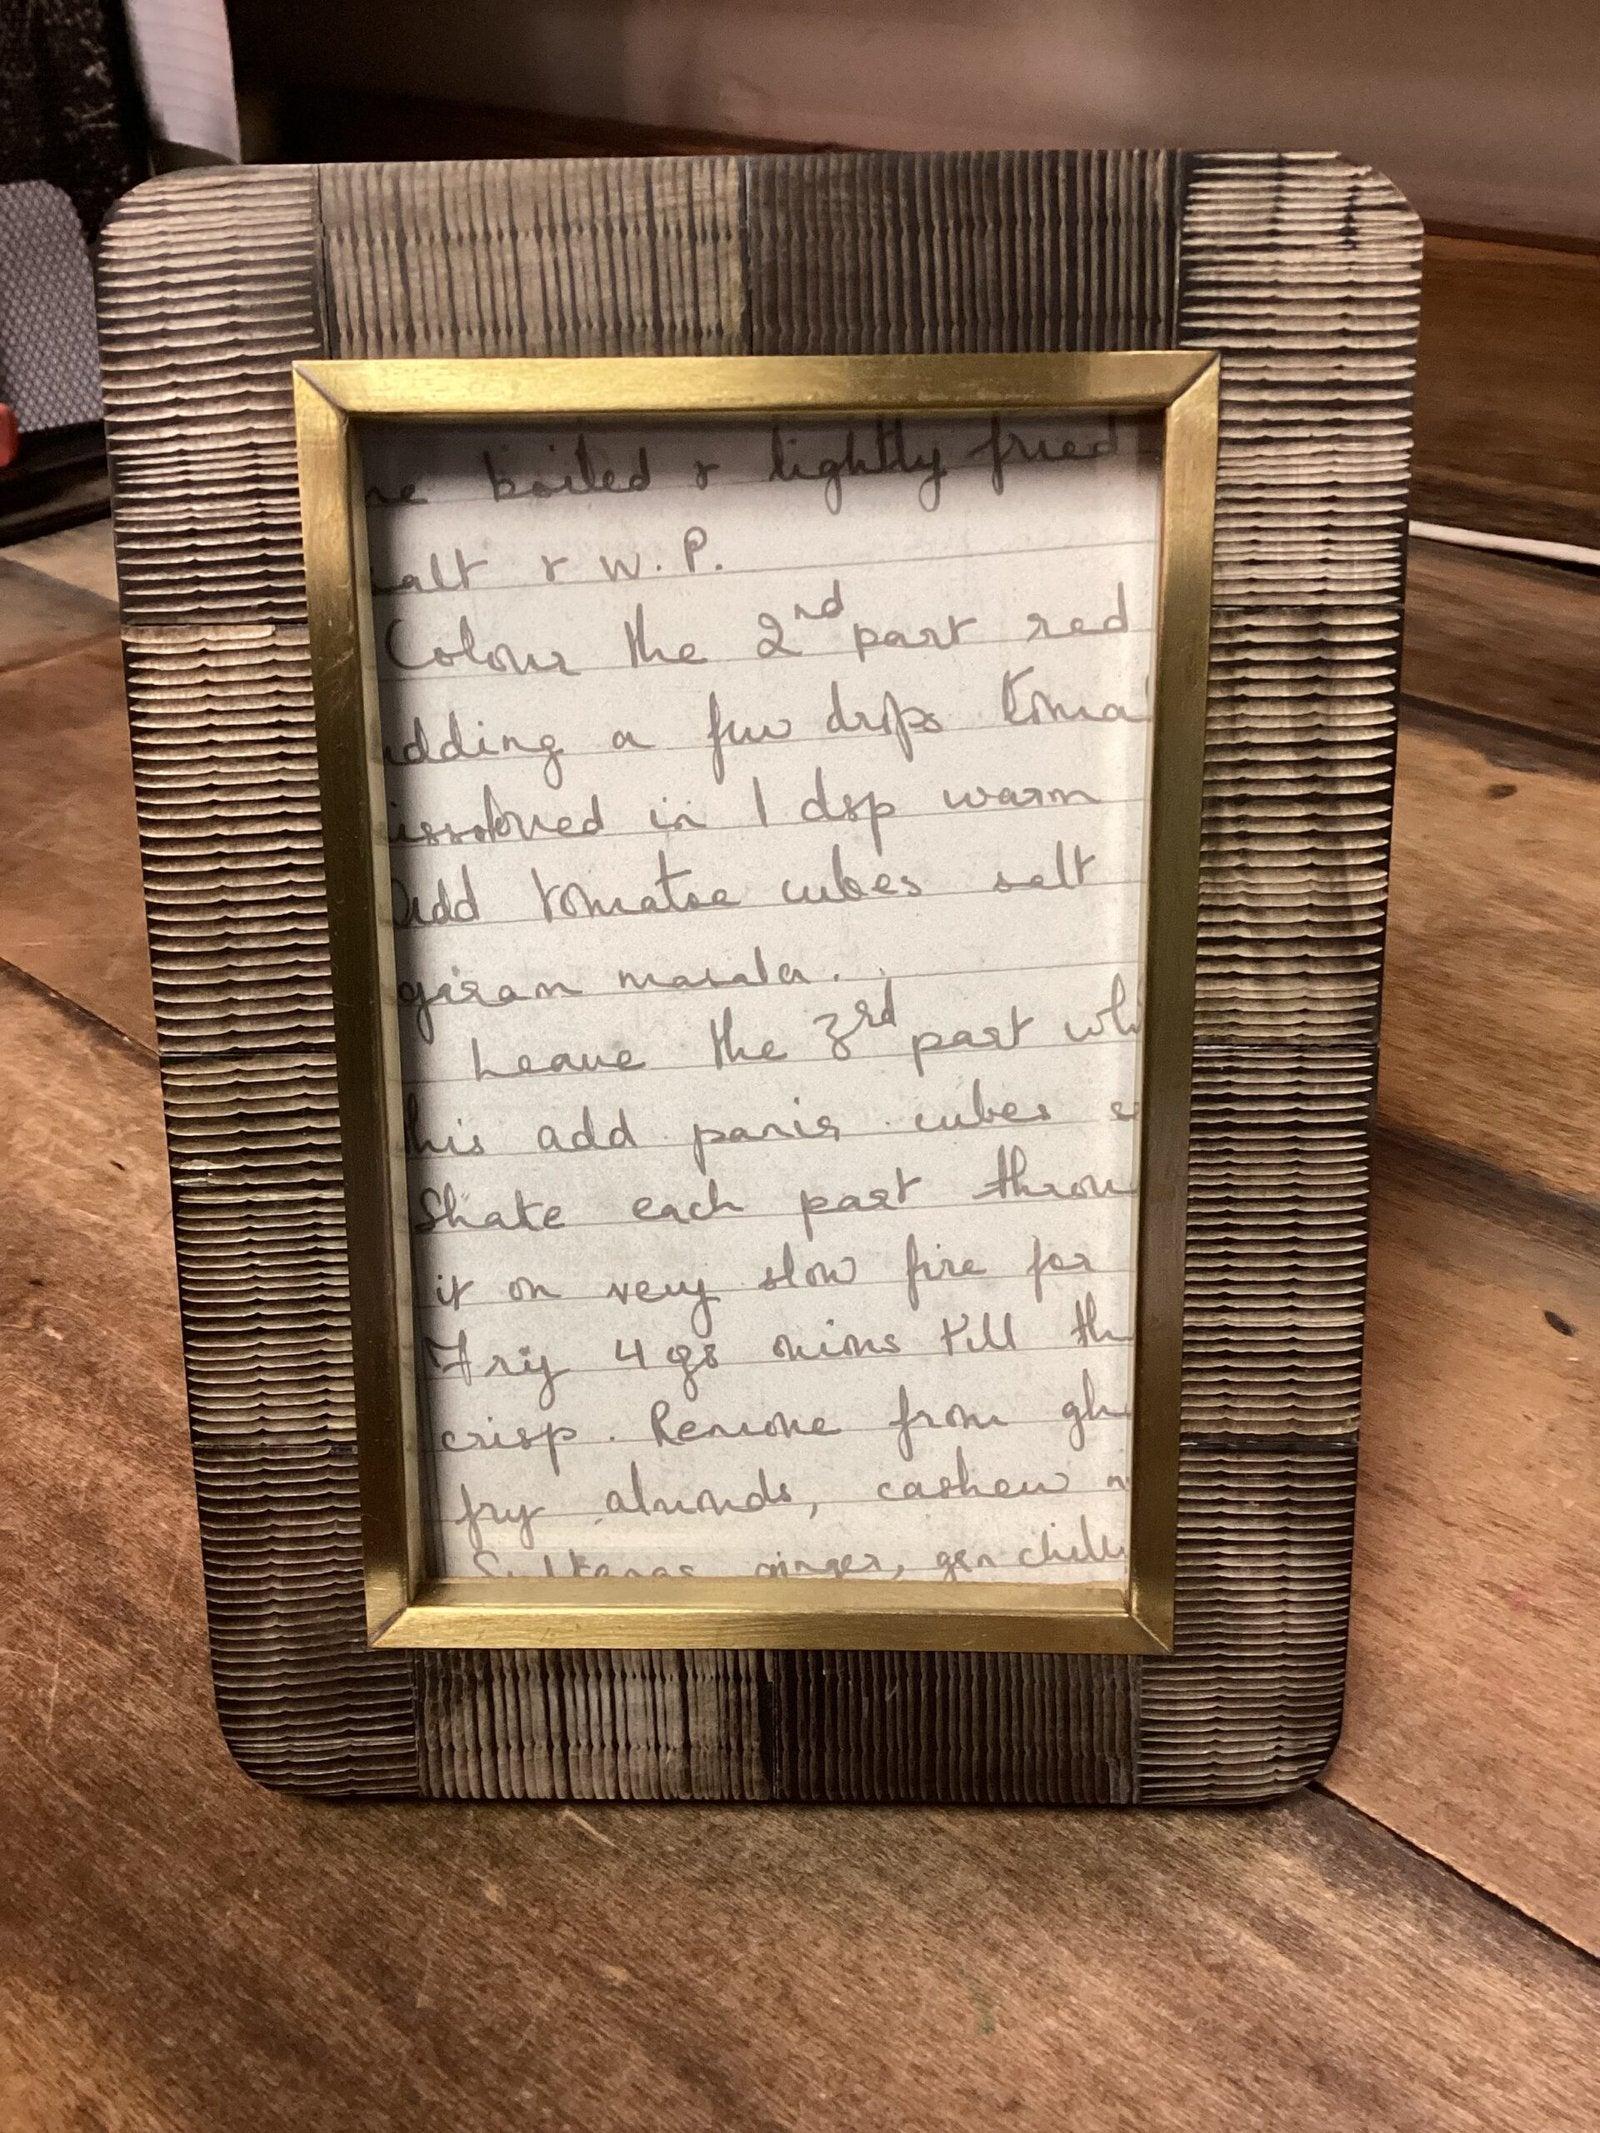 re boiled & lightly fried
alt & W.P.
Colour the 2nd part red
dding a few drops toma
issolved in 1 dsp warm
Add tomatoe cubes salt
garam masala.
Leave the 3rd part whi
his add panir cubes
Shake each part throu
it on very slow fire for
Fry 4 gs onions till th
crisp. Remove from gh
fry almonds, cashew n
Sultanas ginger, grn chilli